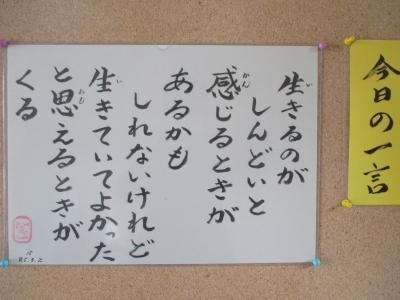 今日の一言
生きるのが
しんどいと
感じるときが
あるかも
しれないけれど
生きていてよかった
と思えるときが
くる